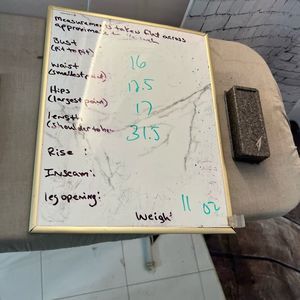 Measurements taken flat across
approximate
Bust 16
(pit to pit)
Waist 12.5
(smallest point)
Hips 17
(largest point)
length 31.5
(shoulder to hem)
Rise :
Inseam:
leg opening:
Weigh: 11 oz